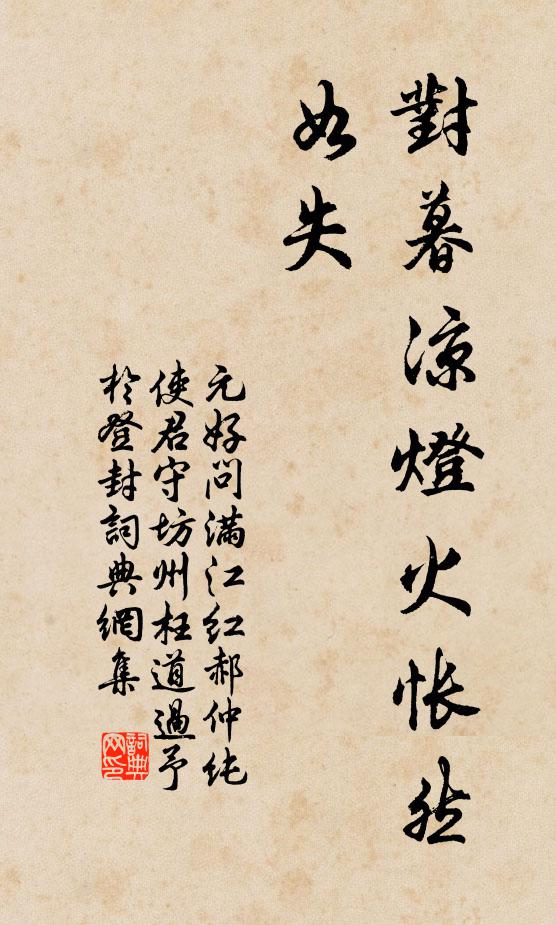 對暮涼燈火悵然
如失
元好問滿江紅郝仲純
使君守坊州枉道過予
於登封詞典網集
詞典網印